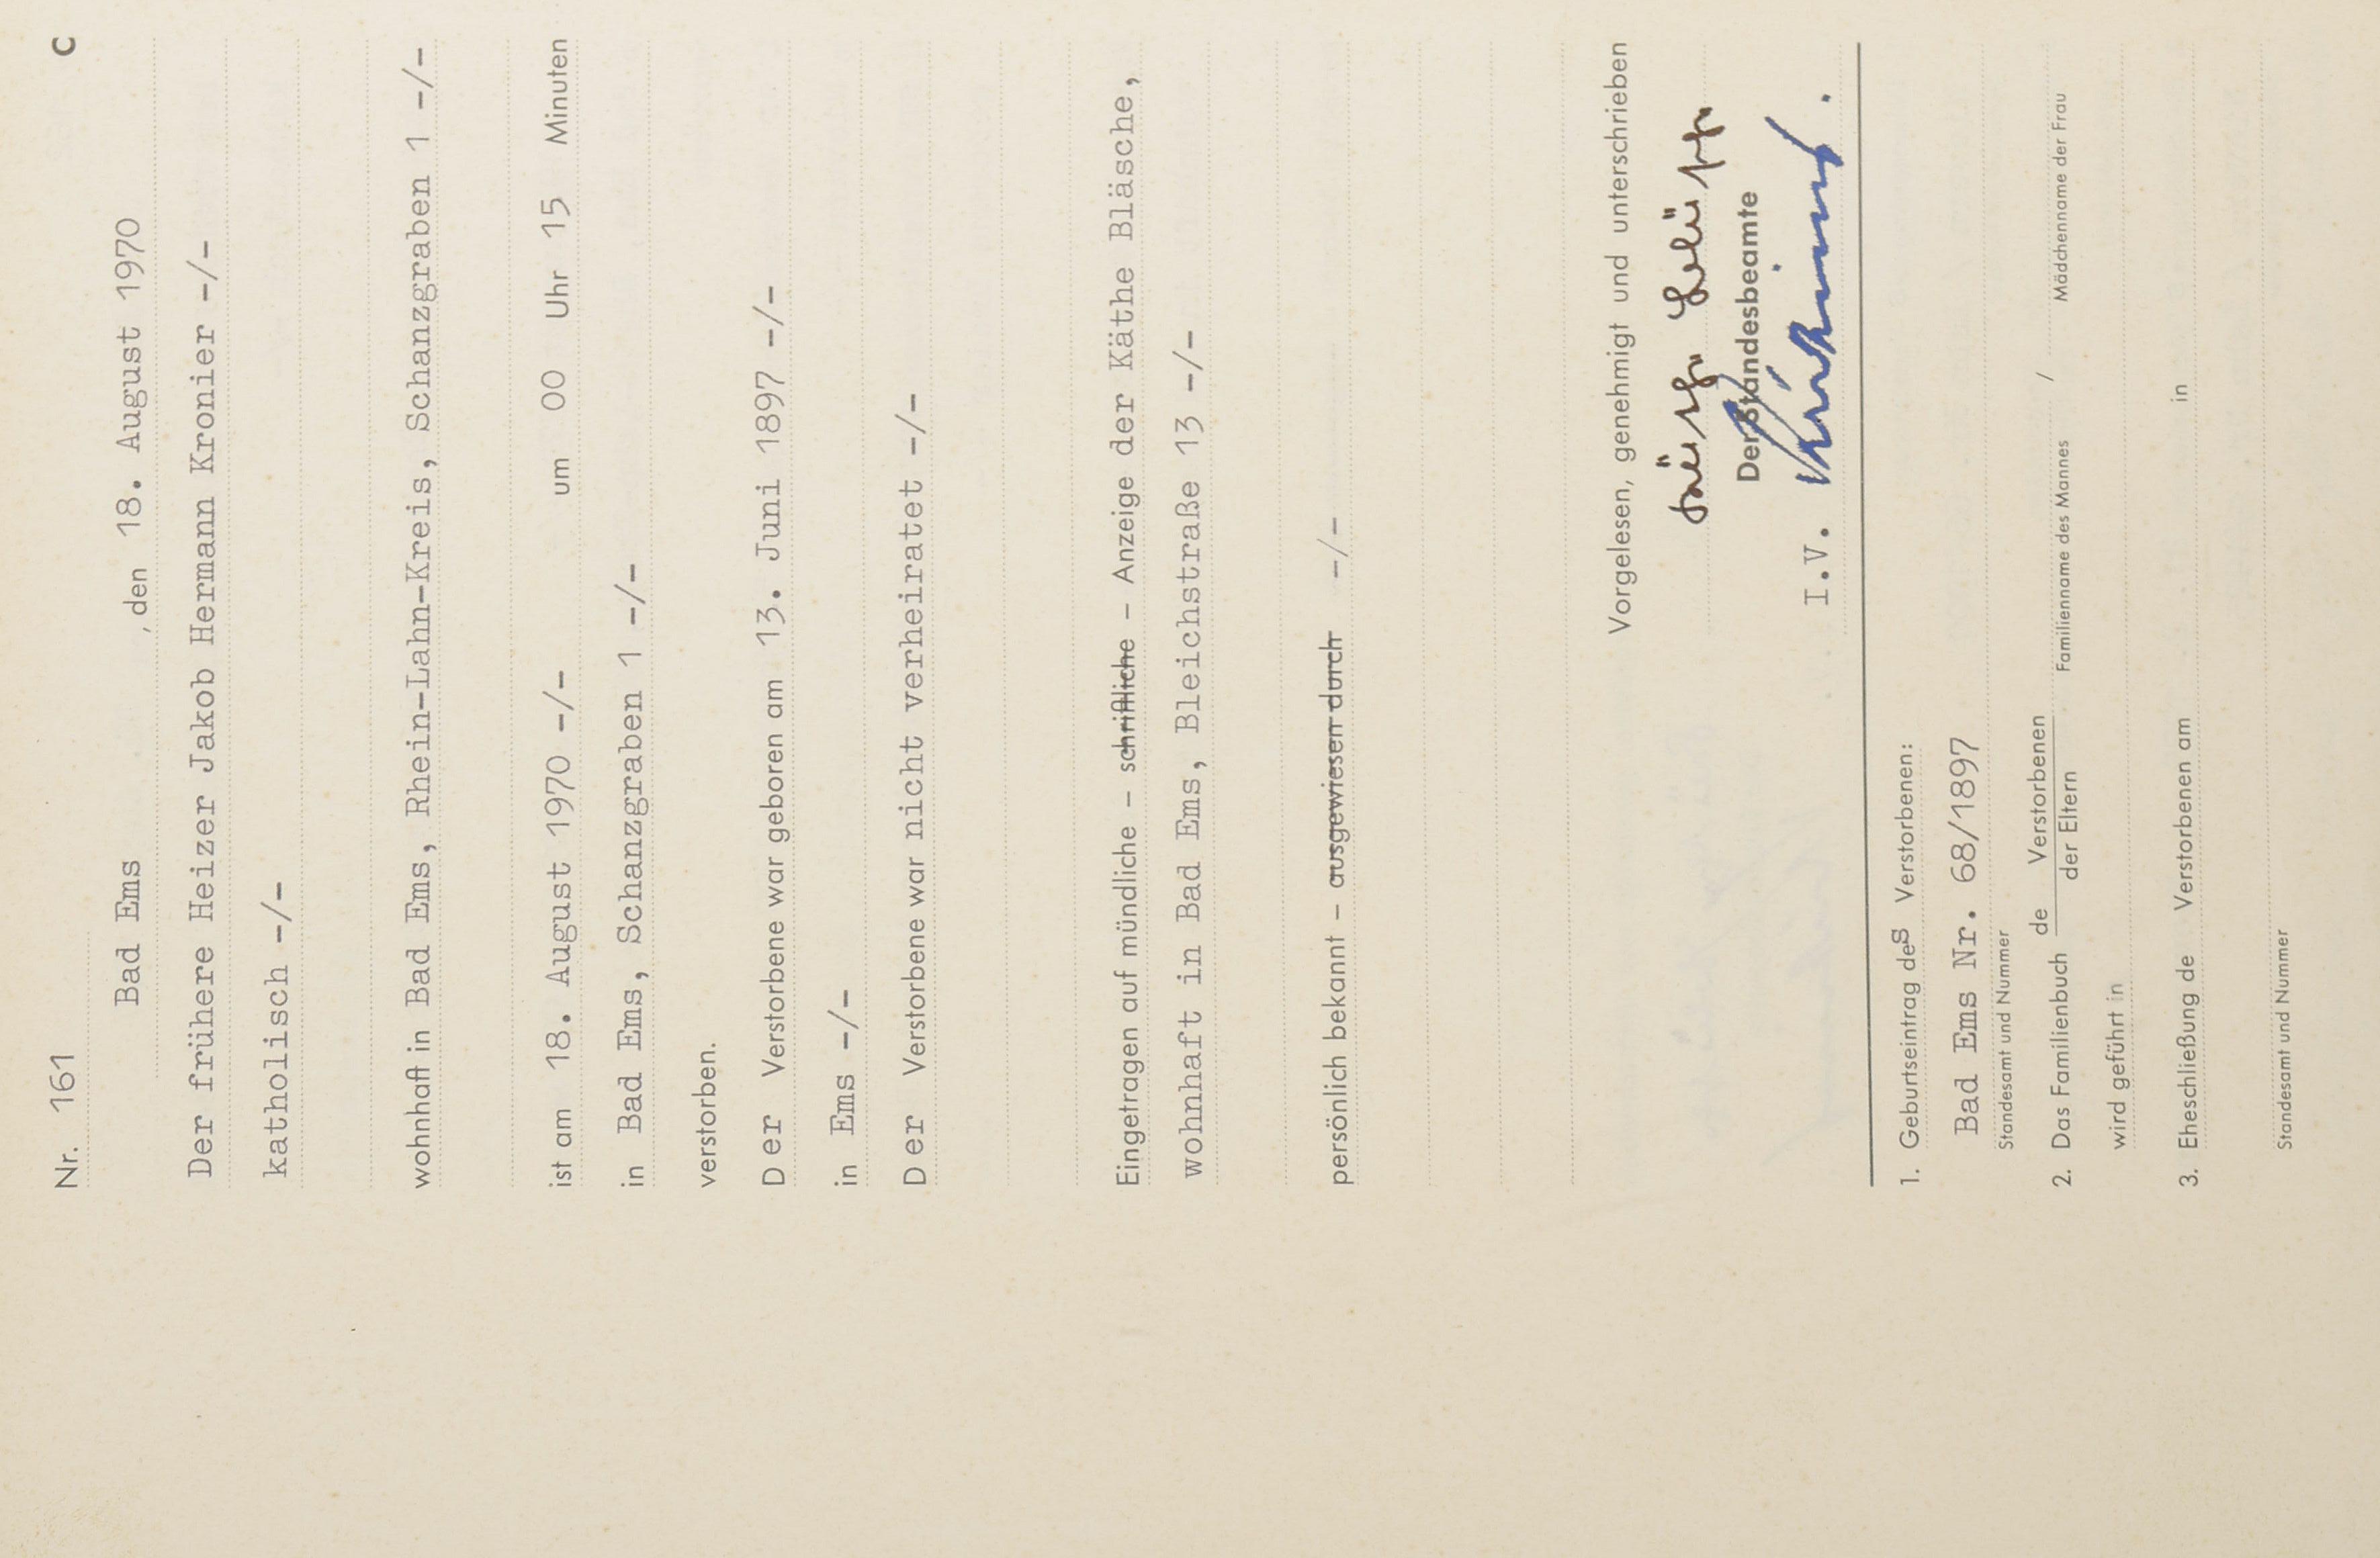 Nr. 161 C
Bad Ems , den 18. August 1970
Der frühere Heizer Jakob Hermann Kronier -/-
katholisch -/-
wohnhaft in Bad Ems, Rhein-Lahn-Kreis, Schanzgraben 1 -/-
ist am 18. August 1970 -/- um 00 Uhr 15 Minuten
in Bad Ems, Schanzgraben 1 -/-
verstorben.
Der Verstorbene war geboren am 13. Juni 1897 -/-
in Ems -/-
Der Verstorbene war nicht verheiratet -/-
Eingetragen auf mündliche – schriftliche – Anzeige der Käthe Bläsche,
wohnhaft in Bad Ems, Bleichstraße 13 -/-
persönlich bekannt – ausgewiesen durch -/-
Vorgelesen, genehmigt und unterschrieben
Der Standesbeamte
I.V.
1. Geburtseintrag des Verstorbenen:
Bad Ems Nr. 68/1897
Standesamt und Nummer
2. Das Familienbuch de Verstorbenen / der Eltern /
Familienname des Mannes Mädchenname der Frau
wird geführt in
3. Eheschließung de Verstorbenen am in
Standesamt und Nummer